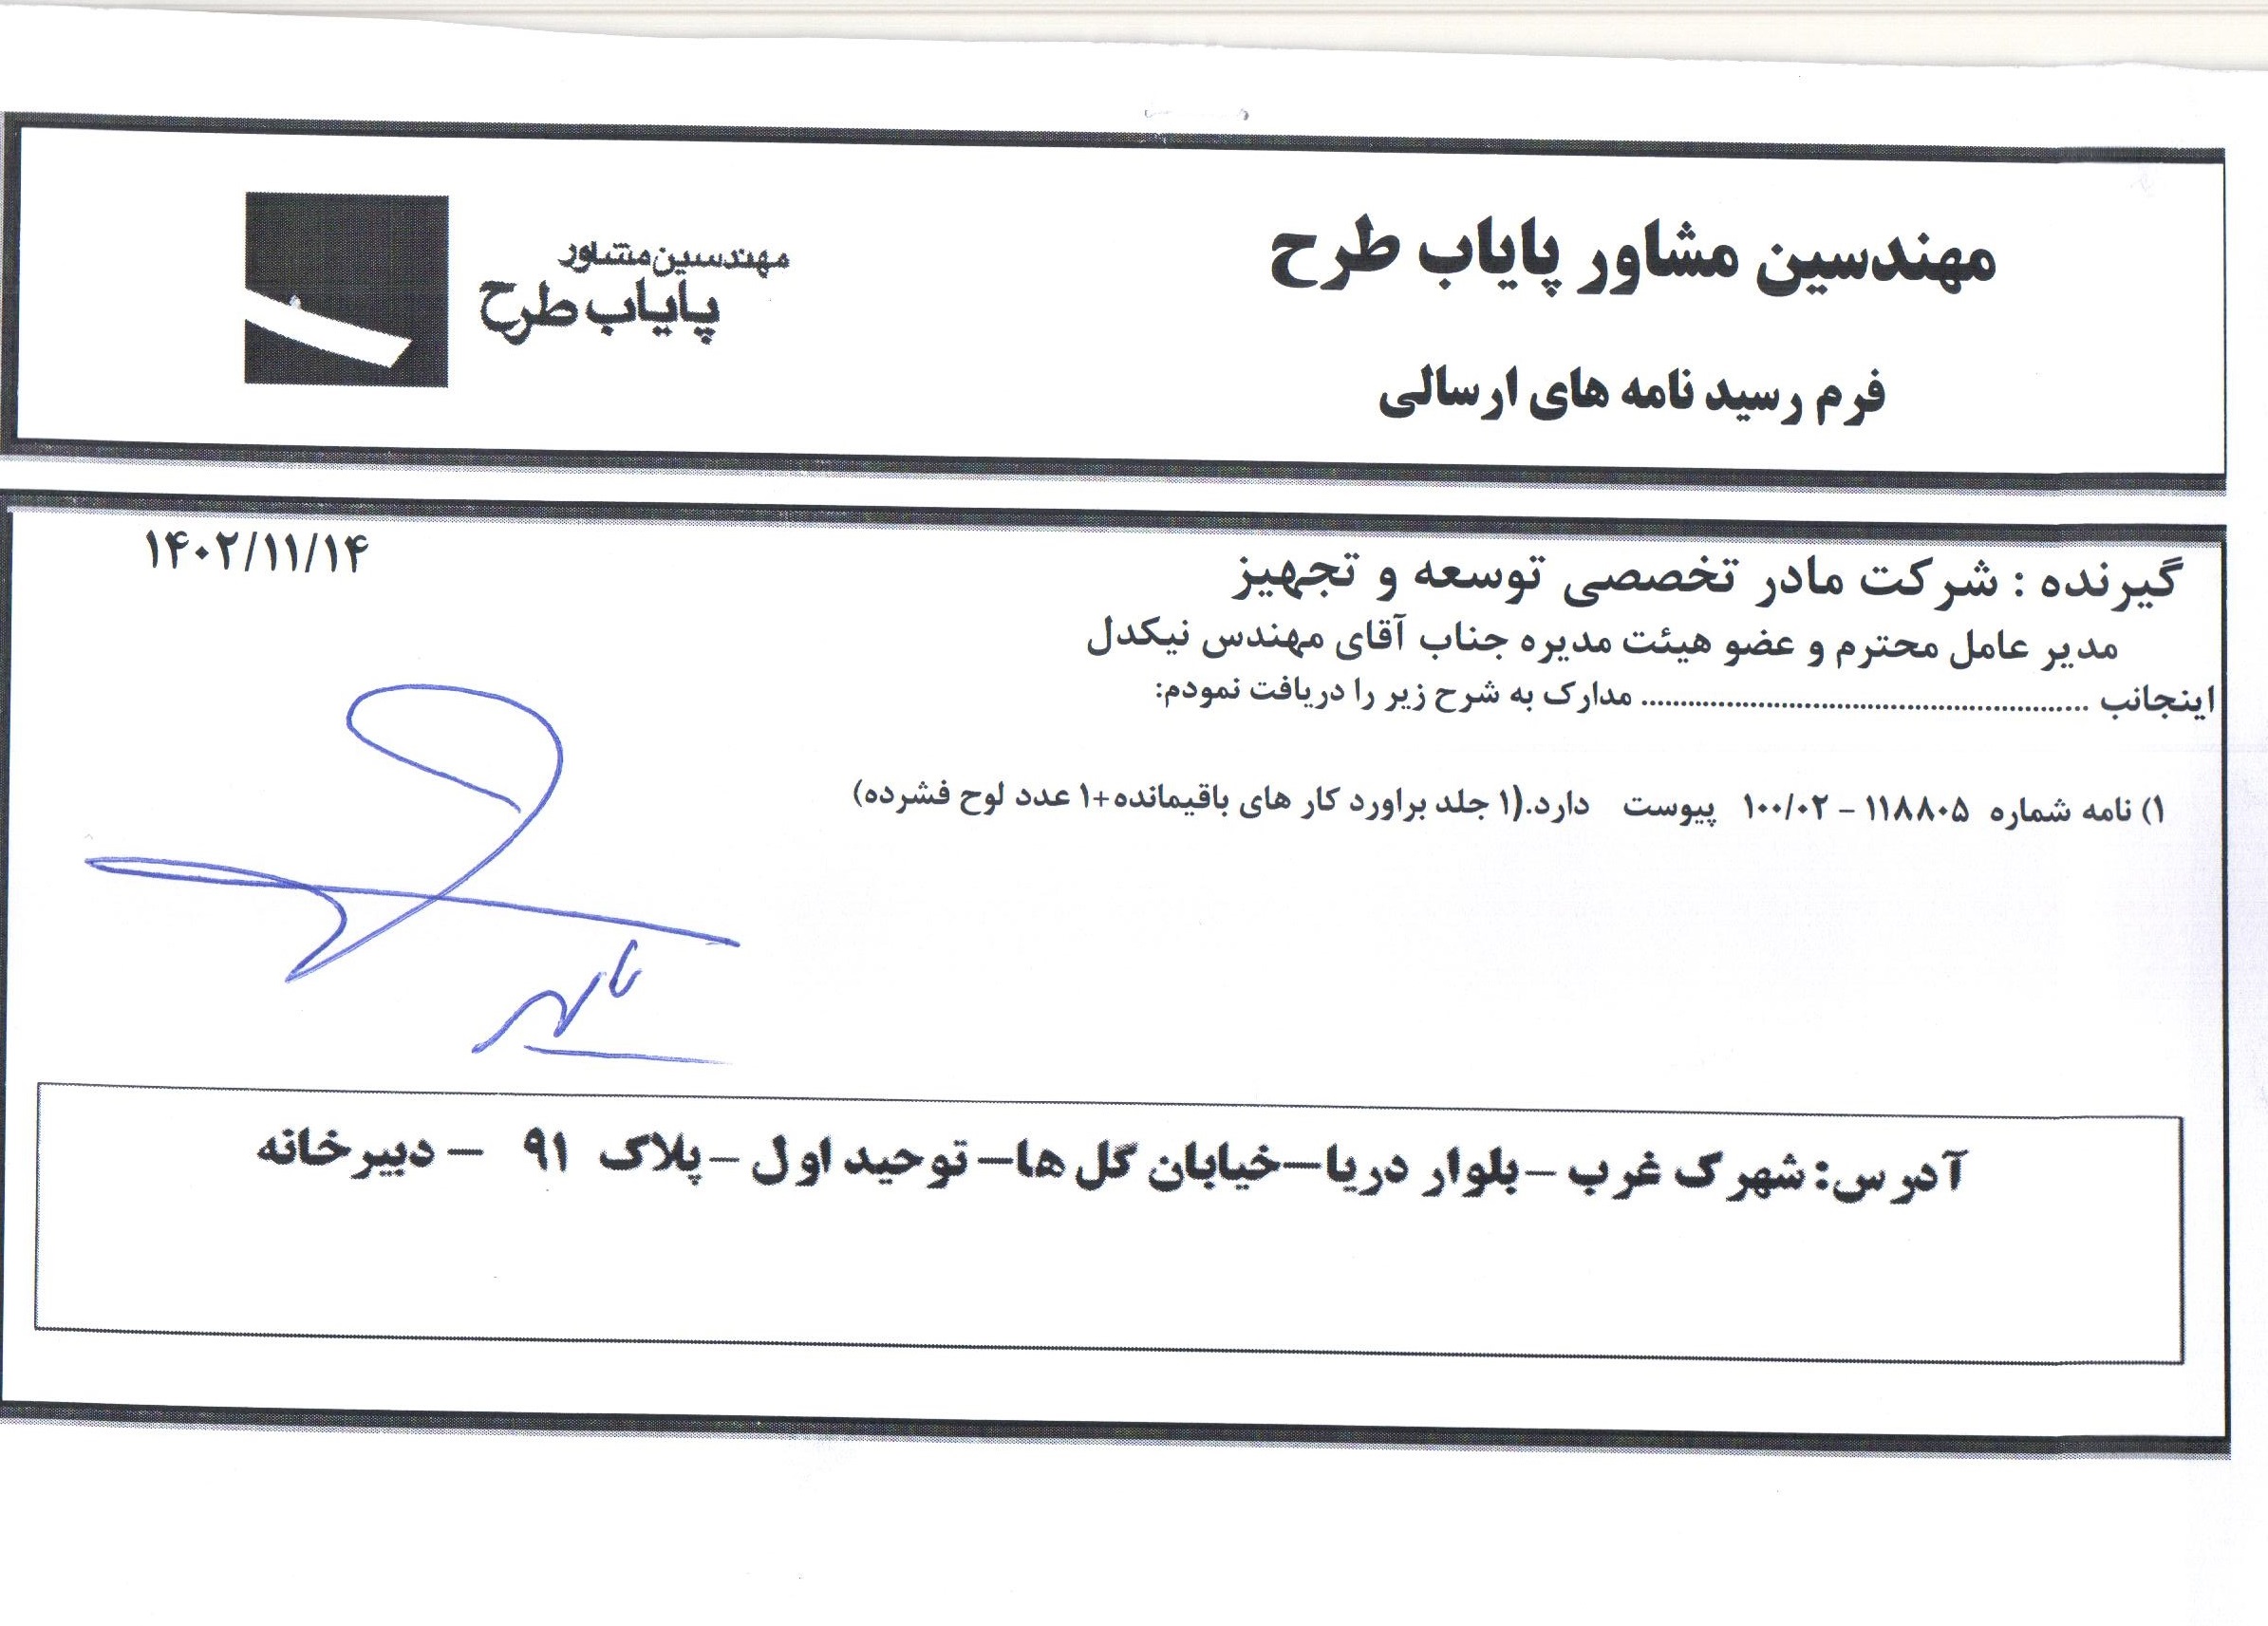 مهندسین مشاور پایاب طرح
مهندسین مشاور
پایاب طرح
فرم رسید نامه های ارسالی
۱۴۰۲/۱۱/۱۴
گیرنده : شرکت مادر تخصصی توسعه و تجهیز
مدیر عامل محترم و عضو هیئت مدیره جناب آقای مهندس نیکدل
اینجانب ........................................................ مدارک به شرح زیر را دریافت نمودم:
۱) نامه شماره ۱۱۸۸۰۵ – ۱۰۰/۰۲ پیوست دارد.(۱ جلد براورد کار های باقیمانده+۱ عدد لوح فشرده)
آدرس: شهرک غرب – بلوار دریا– خیابان گل ها– توحید اول – پلاک ۹۱ – دبیرخانه